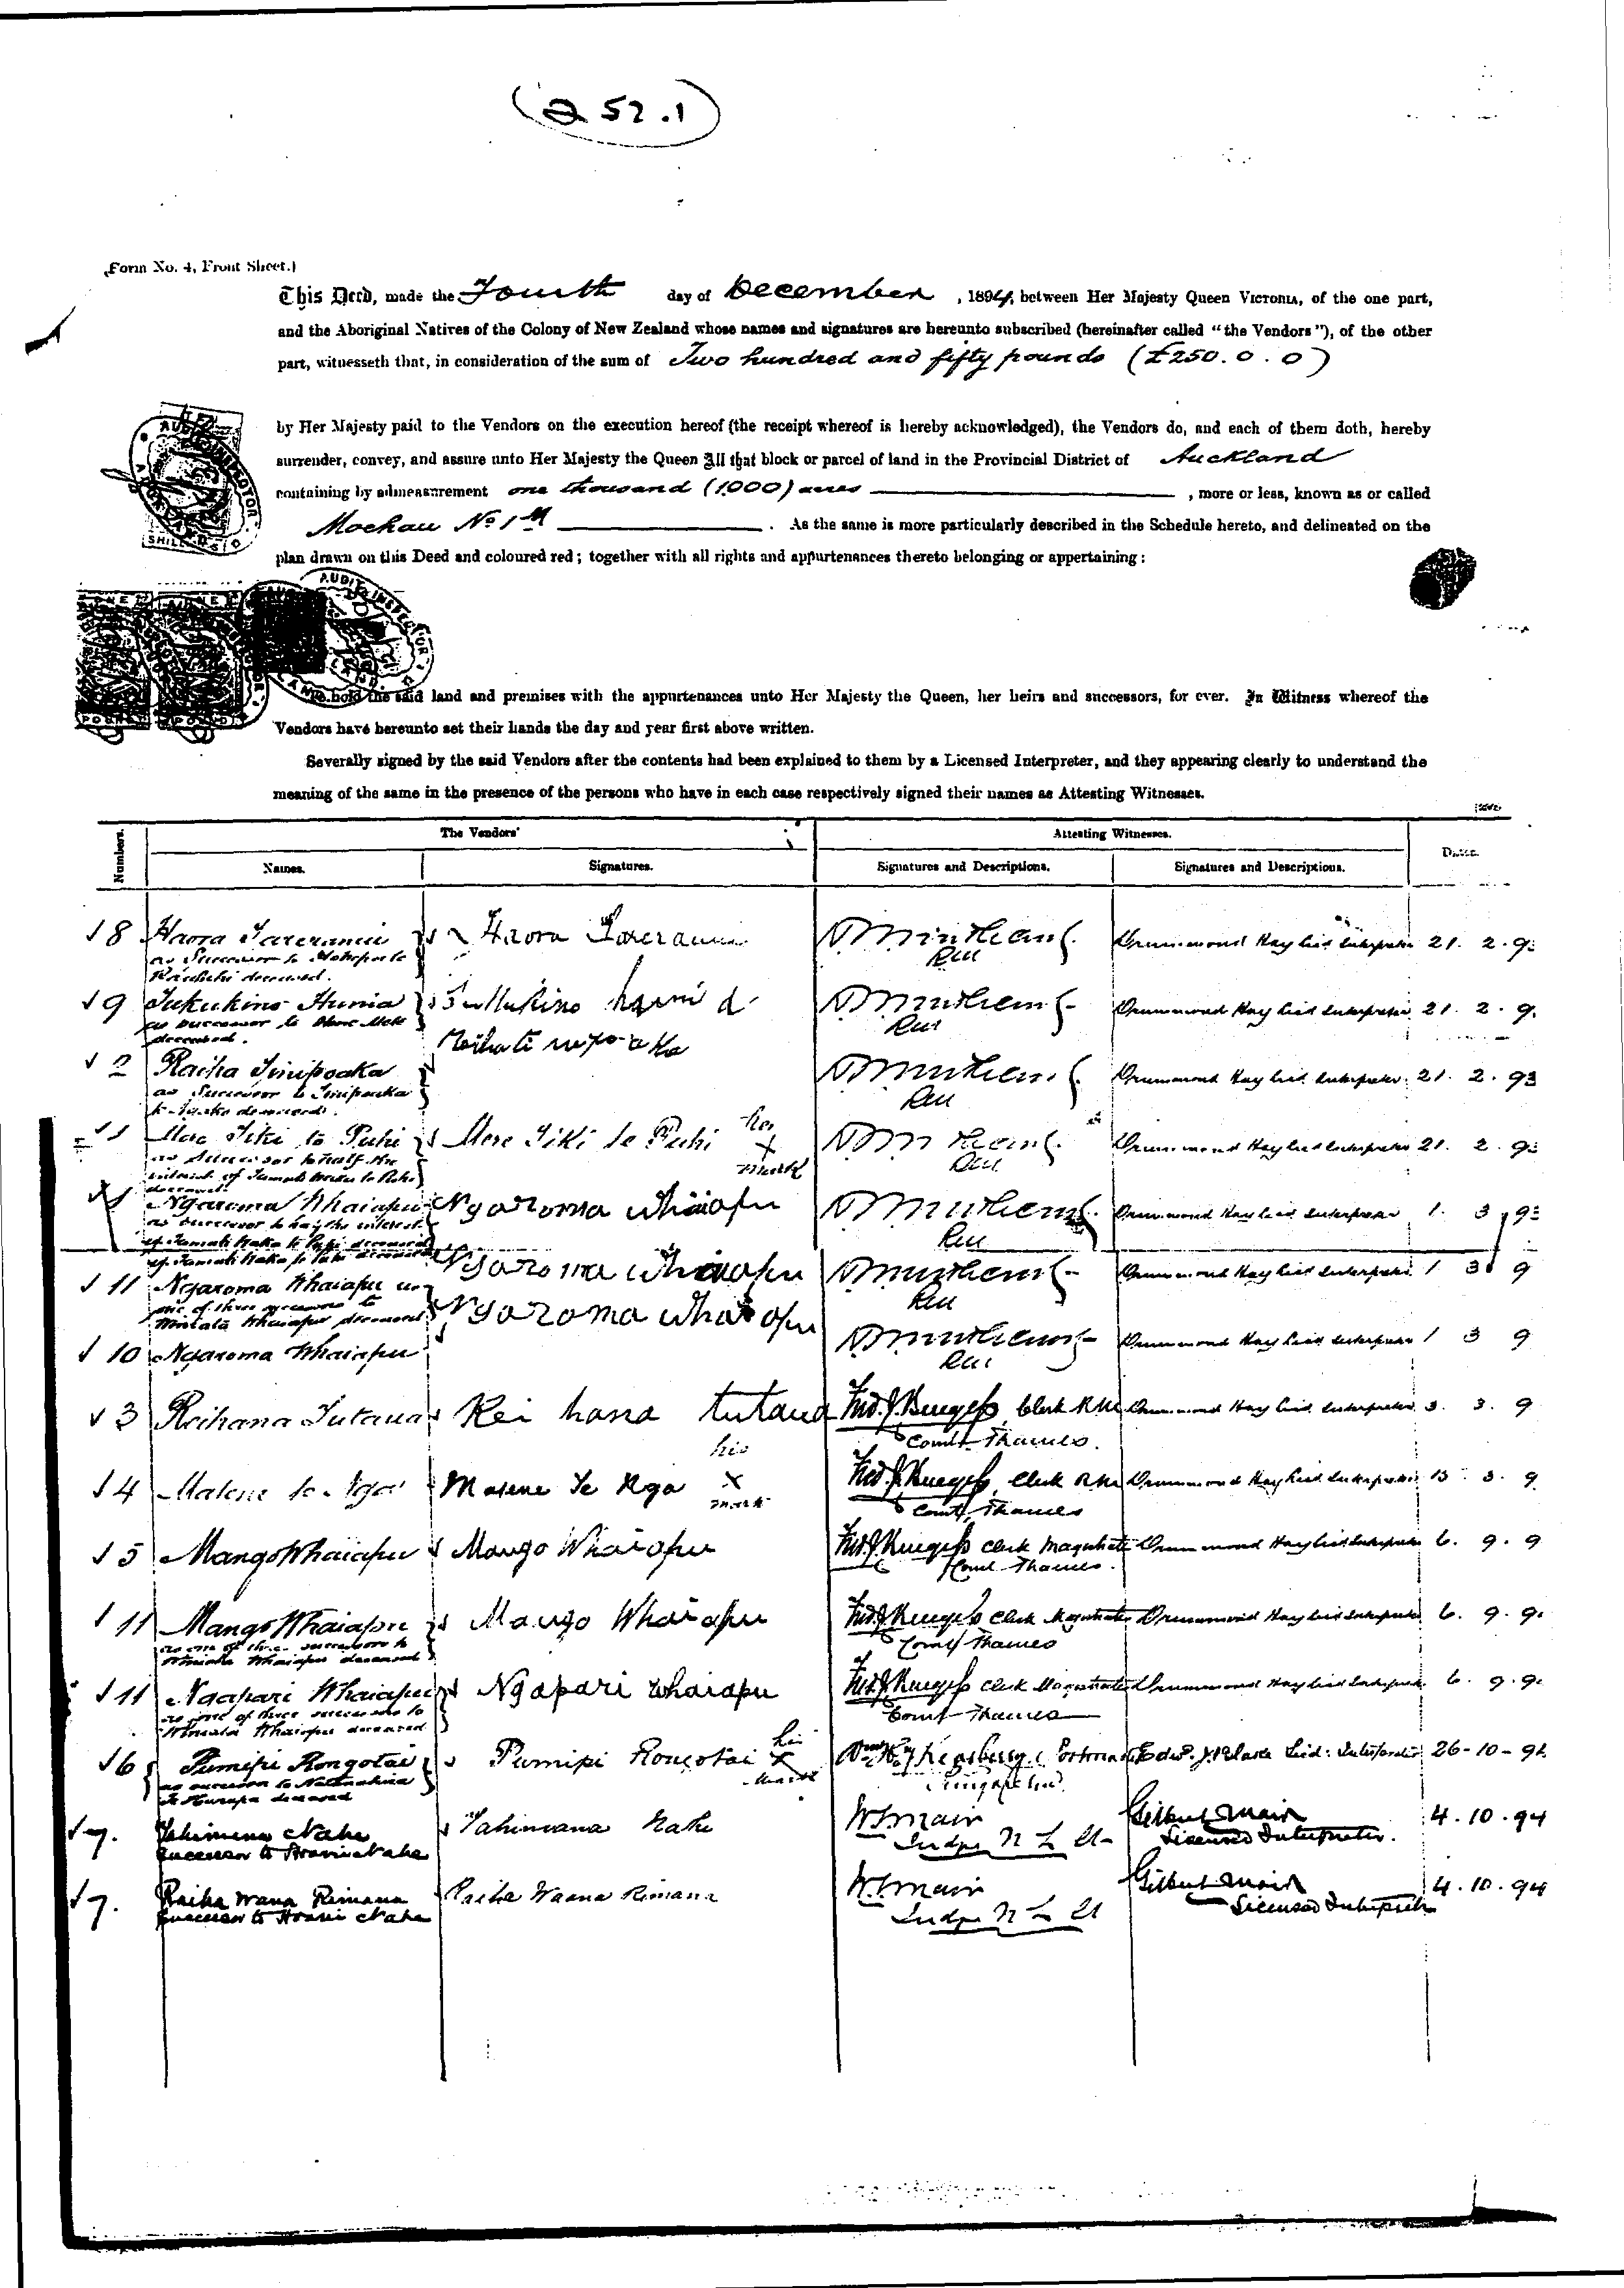 (252.1)
(Form No. 4, Front Sheet.)
This Deed, made the Fourth day of December, 1894, between Her Majesty Queen VICTORIA, of the one part,
and the Aboriginal Natives of the Colony of New Zealand whose names and signatures are hereunto subscribed (hereinafter called "the Vendors"), of the other
part, witnesseth that, in consideration of the sum of Two hundred and fifty pounds (£250.0.0)
by Her Majesty paid to the Vendors on the execution hereof (the receipt whereof is hereby acknowledged), the Vendors do, and each of them doth, hereby
surrender, convey, and assure unto Her Majesty the Queen All that block or parcel of land in the Provincial District of Auckland
containing by admeasurement one thousand (1000) acres, more or less, known as or called
Moehau No 1M. As the same is more particularly described in the Schedule hereto, and delineated on the
plan drawn on this Deed and coloured red; together with all rights and appurtenances thereto belonging or appertaining:
hold the said land and premises with the appurtenances unto Her Majesty the Queen, her heirs and successors, for ever. In Witness whereof the
Vendors have hereunto set their hands the day and year first above written.
Severally signed by the said Vendors after the contents had been explained to them by a Licensed Interpreter, and they appearing clearly to understand the
meaning of the same in the presence of the persons who have in each case respectively signed their names as Attesting Witnesses.
Numbers. The Vendors' Attesting Witnesses. Dates.
Names. Signatures. Signatures and Descriptions. Signatures and Descriptions.
8 Haora Tareranui Haora Tareranui Drummond Hay Licd Interpreter 21. 2. 9
as Successor to
deceased.
9 Tukukino Hunia Drummond Hay Licd Interpreter 21. 2. 9
as Successor to
deceased.
2 Raiha Tinipoaka Drummond Hay Licd Interpreter 21. 2. 93
as Successor to Tinipoaka
deceased.
Mere Tiki te Puhi Mere Tiki te Puhi her x mark Drummond Hay Licd Interpreter 21. 2. 9
as Successor to half the
interest of
deceased
Ngaroma Whaiapu Ngaroma Whaiapu Drummond Hay Licd Interpreter 1. 3. 93
as successor to half the interest
11 Ngaroma Whaiapu as Ngaroma Whaiapu Drummond Hay Licd Interpreter 1 3 9
one of three successors to
Whaiapu deceased
10 Ngaroma Whaiapu Ngaroma Whaiapu Drummond Hay Licd Interpreter 1 3 9
3 Reihana Tutaua Reihana tutaua Fred. J. Burgess Clerk RM Drummond Hay Licd Interpreter 3. 3. 9
Court Thames.
4 Matene te Nga Matene Te Nga his x mark Fred. J. Burgess Clerk RM Drummond Hay Licd Interpreter 13. 3. 9
Court, Thames
5 Mango Whaiapu Mango Whaiapu Fred. J. Burgess Clerk Magistrates Drummond Hay Licd Interpreter 6. 9. 9
Court Thames.
11 Mango Whaiapu Mango Whaiapu Fred. J. Burgess Clerk Magistrates Drummond Hay Licd Interpreter 6. 9. 9
as one of three successors to Court Thames
Whaiapu deceased
11 Ngapari Whaiapu Ngapari Whaiapu Fred. J. Burgess Clerk Magistrates Drummond Hay Licd Interpreter 6. 9. 9
as one of three successors to Court Thames
Whaiapu deceased
6 Pumipi Rongotai Pumipi Rongotai his x mark Licd: Interpreter 26-10-94
as successor to
deceased
7. Nahe Nahe Judge N L Ct Gilbert Mair 4.10.94
Successor to Hoani Nahe Licensed Interpreter.
7. Raiha Wana Rimana Raiha Waana Rimana Judge N L Ct Gilbert Mair 4.10.94
Successor to Hoani Nahe Licensed Interpreter